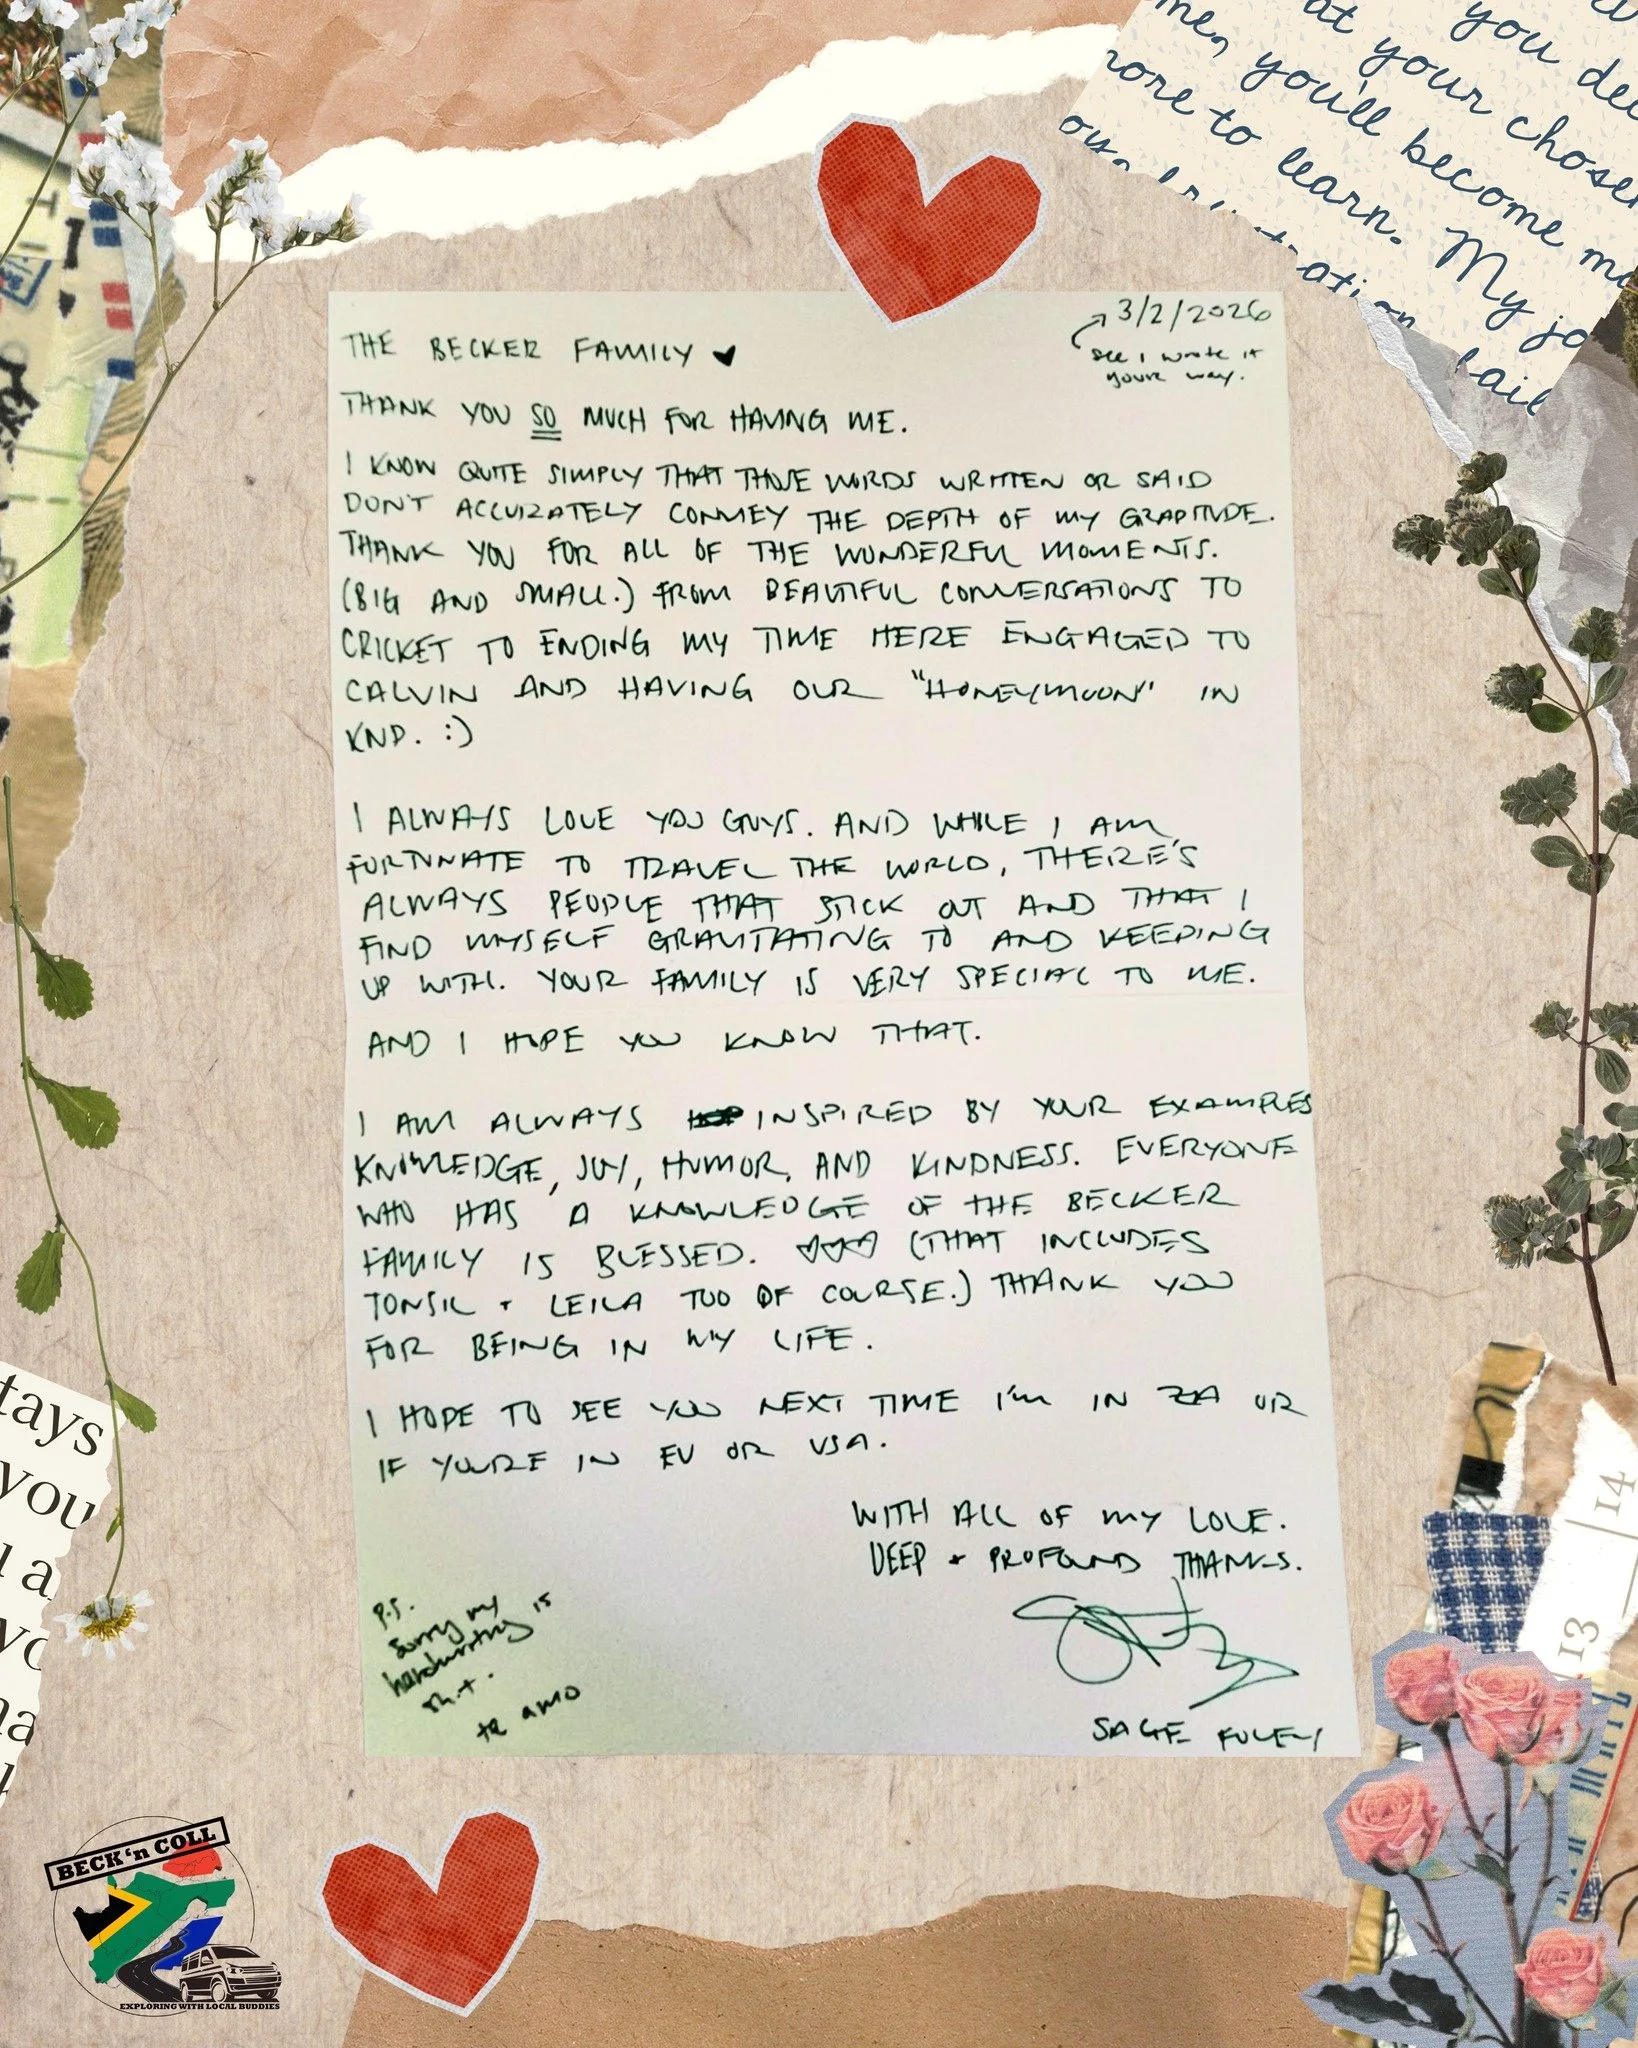 me, you'll become mo
at your chosen
you de
more to learn. My jo
THE BECKER FAMILY ♥
3/2/2026
see I wrote it
youre way.
THANK YOU SO MUCH FOR HAVING ME.
I KNOW QUITE SIMPLY THAT THOSE WORDS WRITTEN OR SAID
DON'T ACCURATELY CONVEY THE DEPTH OF MY GRADITUDE.
THANK YOU FOR ALL OF THE WONDERFUL MOMENTS.
(BIG AND SMALL.) FROM BEAUTIFUL CONVERSATIONS TO
CRICKET TO ENDING MY TIME HERE ENGAGED TO
CALVIN AND HAVING OUR "HONEYMOON" IN
KND. :)
I ALWAYS LOVE YOU GUYS. AND WHILE I AM
FORTUNATE TO TRAVEL THE WORLD, THERE'S
ALWAYS PEOPLE THAT STICK OUT AND THAT I
FIND MYSELF GRAVITATING TO AND KEEPING
UP WITH. YOUR FAMILY IS VERY SPECIAL TO ME.
AND I HOPE YOU KNOW THAT.
I AM ALWAYS INSPIRED BY YOUR EXAMPLES
KNOWLEDGE, JOY, HUMOR, AND KINDNESS. EVERYONE
WHO HAS A KNOWLEDGE OF THE BECKER
FAMILY IS BLESSED. ♡♡♡ (THAT INCLUDES
TONSIL + LEILA TOO OF COURSE.) THANK YOU
FOR BEING IN MY LIFE.
I HOPE TO SEE YOU NEXT TIME I'M IN ZA OR
IF YOU'RE IN EU OR USA.
WITH ALL OF MY LOVE.
DEEP + PROFOUND THANKS.
SAGE
P.S.
Sorry my
handwriting is
sh.t.
te amo
tays
you
14
13
BECK 'n COLL
EXPLORING WITH LOCAL BUDDIES